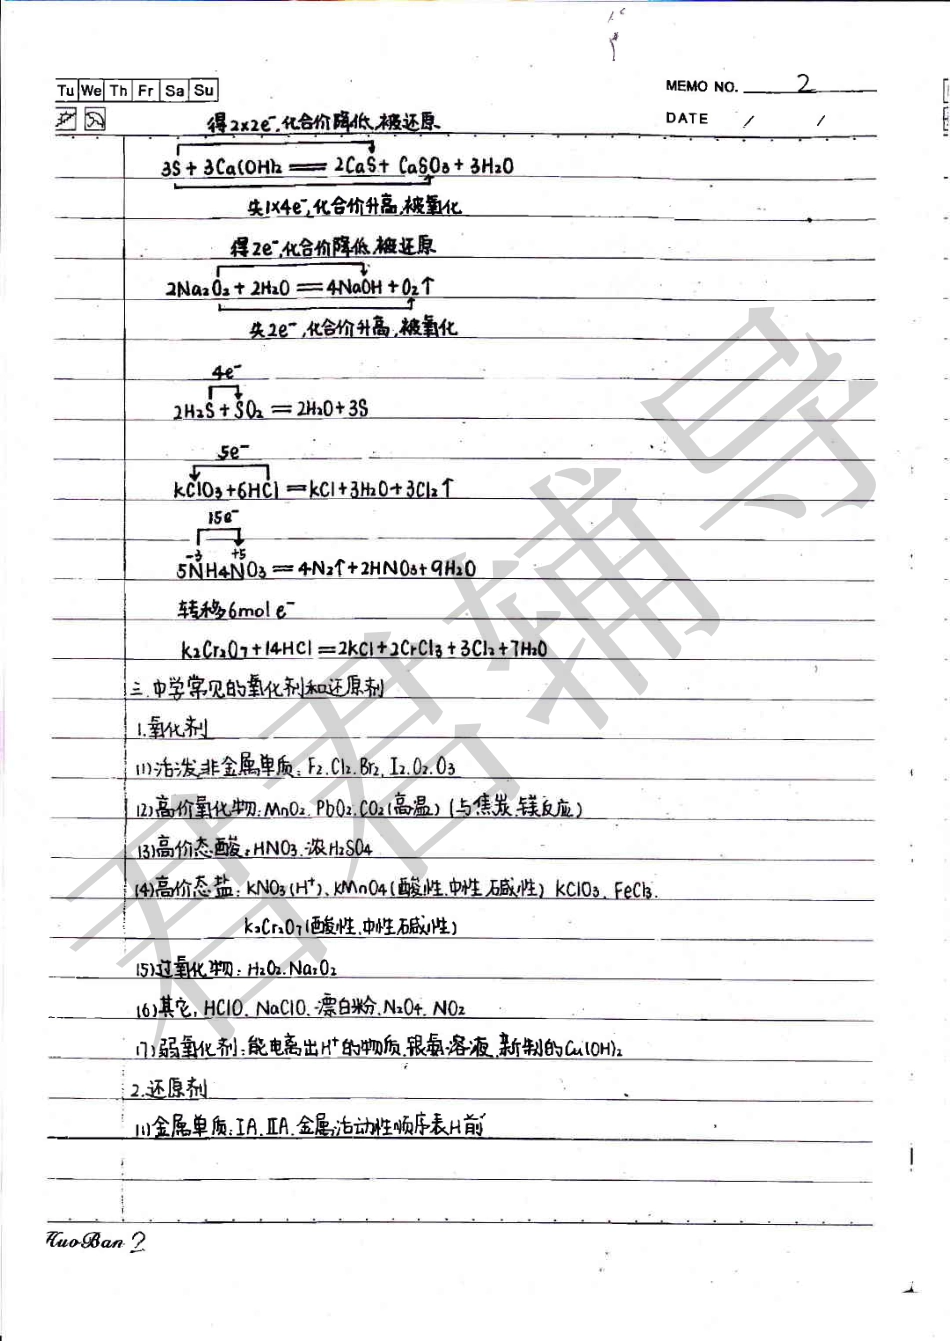 Tu We Th Fr Sa Su
MEMO NO. 2
DATE / /
得2×2e⁻,化合价降低,被还原
3S+3Ca(OH)₂══2CaS+CaSO₃+3H₂O
失1×4e⁻,化合价升高,被氧化
得2e⁻,化合价降低,被还原
2Na₂O₂+2H₂O══4NaOH+O₂↑
失2e⁻,化合价升高,被氧化
4e⁻
2H₂S+SO₂=2H₂O+3S
5e⁻
KClO₃+6HCl=KCl+3H₂O+3Cl₂↑
15e⁻
-3 +5
5NH₄NO₃=4N₂↑+2HNO₃+9H₂O
转移6mol e⁻
K₂Cr₂O₇+14HCl=2KCl+2CrCl₃+3Cl₂+7H₂O
三.中学常见的氧化剂和还原剂
1.氧化剂
(1)活泼非金属单质:F₂.Cl₂.Br₂.I₂.O₂.O₃
(2)高价氧化物:MnO₂.PbO₂.CO₂(高温)(与焦炭.镁反应)
(3)高价态酸:HNO₃.浓H₂SO₄
(4)高价态盐:KNO₃(H⁺)、KMnO₄(酸性.中性.碱性) KClO₃.FeCl₃.
K₂Cr₂O₇(酸性.中性.碱性)
(5)过氧化物:H₂O₂.Na₂O₂
(6)其它,HClO.NaClO.漂白粉.N₂O₄.NO₂
(7)弱氧化剂:能电离出H⁺的物质.银氨溶液.新制的Cu(OH)₂
2.还原剂
(1)金属单质:ⅠA.ⅡA.金属活动性顺序表H前
HuoBan 2
君君辅导